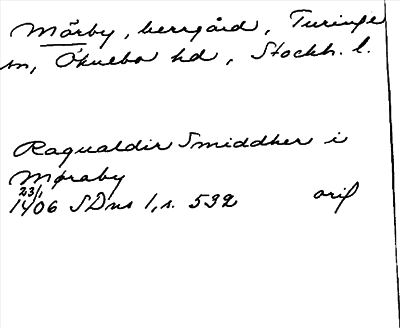 Mörby, herrgård, Turinge
sn, Öknebo hd, Stockh. l.
Ragualdir Smiddher i
Møraby
23/1
1406 SDns 1, s. 532 orig